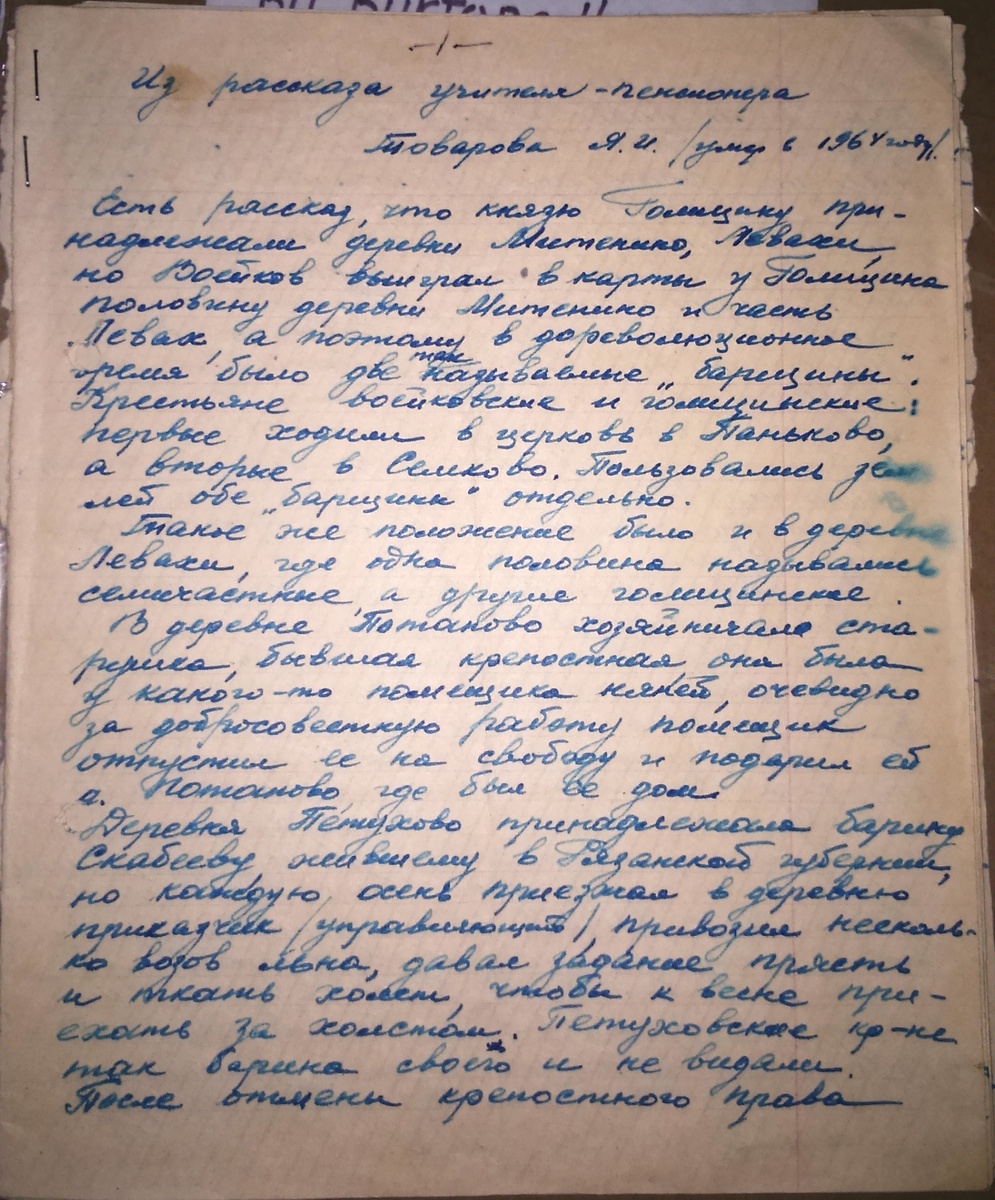 -1-
Из рассказа учителя-пенсионера
Товарова Я.И. /умер в 1964 году/.
Есть рассказ, что князю Голицину при-
надлежали деревни Митенино, Левахи,
но Воейков выиграл в карты у Голицина
половину деревни Митенино и часть
Левах, а поэтому в дореволюционное
время было две так называемые „барщины".
Крестьяне воейковские и голицинские:
первые ходили в церковь в Паньково,
а вторые в Семково. Пользовались зем
лей обе „барщины" отдельно.
Такое же положение было и в деревне
Левахи, где одна половина назывались
семичастные, а другие голицинские.
В деревне Потапово хозяйничала ста-
рушка, бывшая крепостная, она была
у какого-то помещика няней, очевидно
за добросовестную работу помещик
отпустил ее на свободу и подарил ей
д. Потапово, где был ее дом.
Деревня Петухово принадлежала барину
Скабееву жившему в Рязанской губернии,
но каждую осень приезжал в деревню
приказчик /управляющий/, привозил несколь-
ко возов льна, давал задание прясть
и ткать холст, чтобы к весне при-
ехать за холстом. Петуховские кр-не
так барина своего и не видали.
После отмены крепостного права